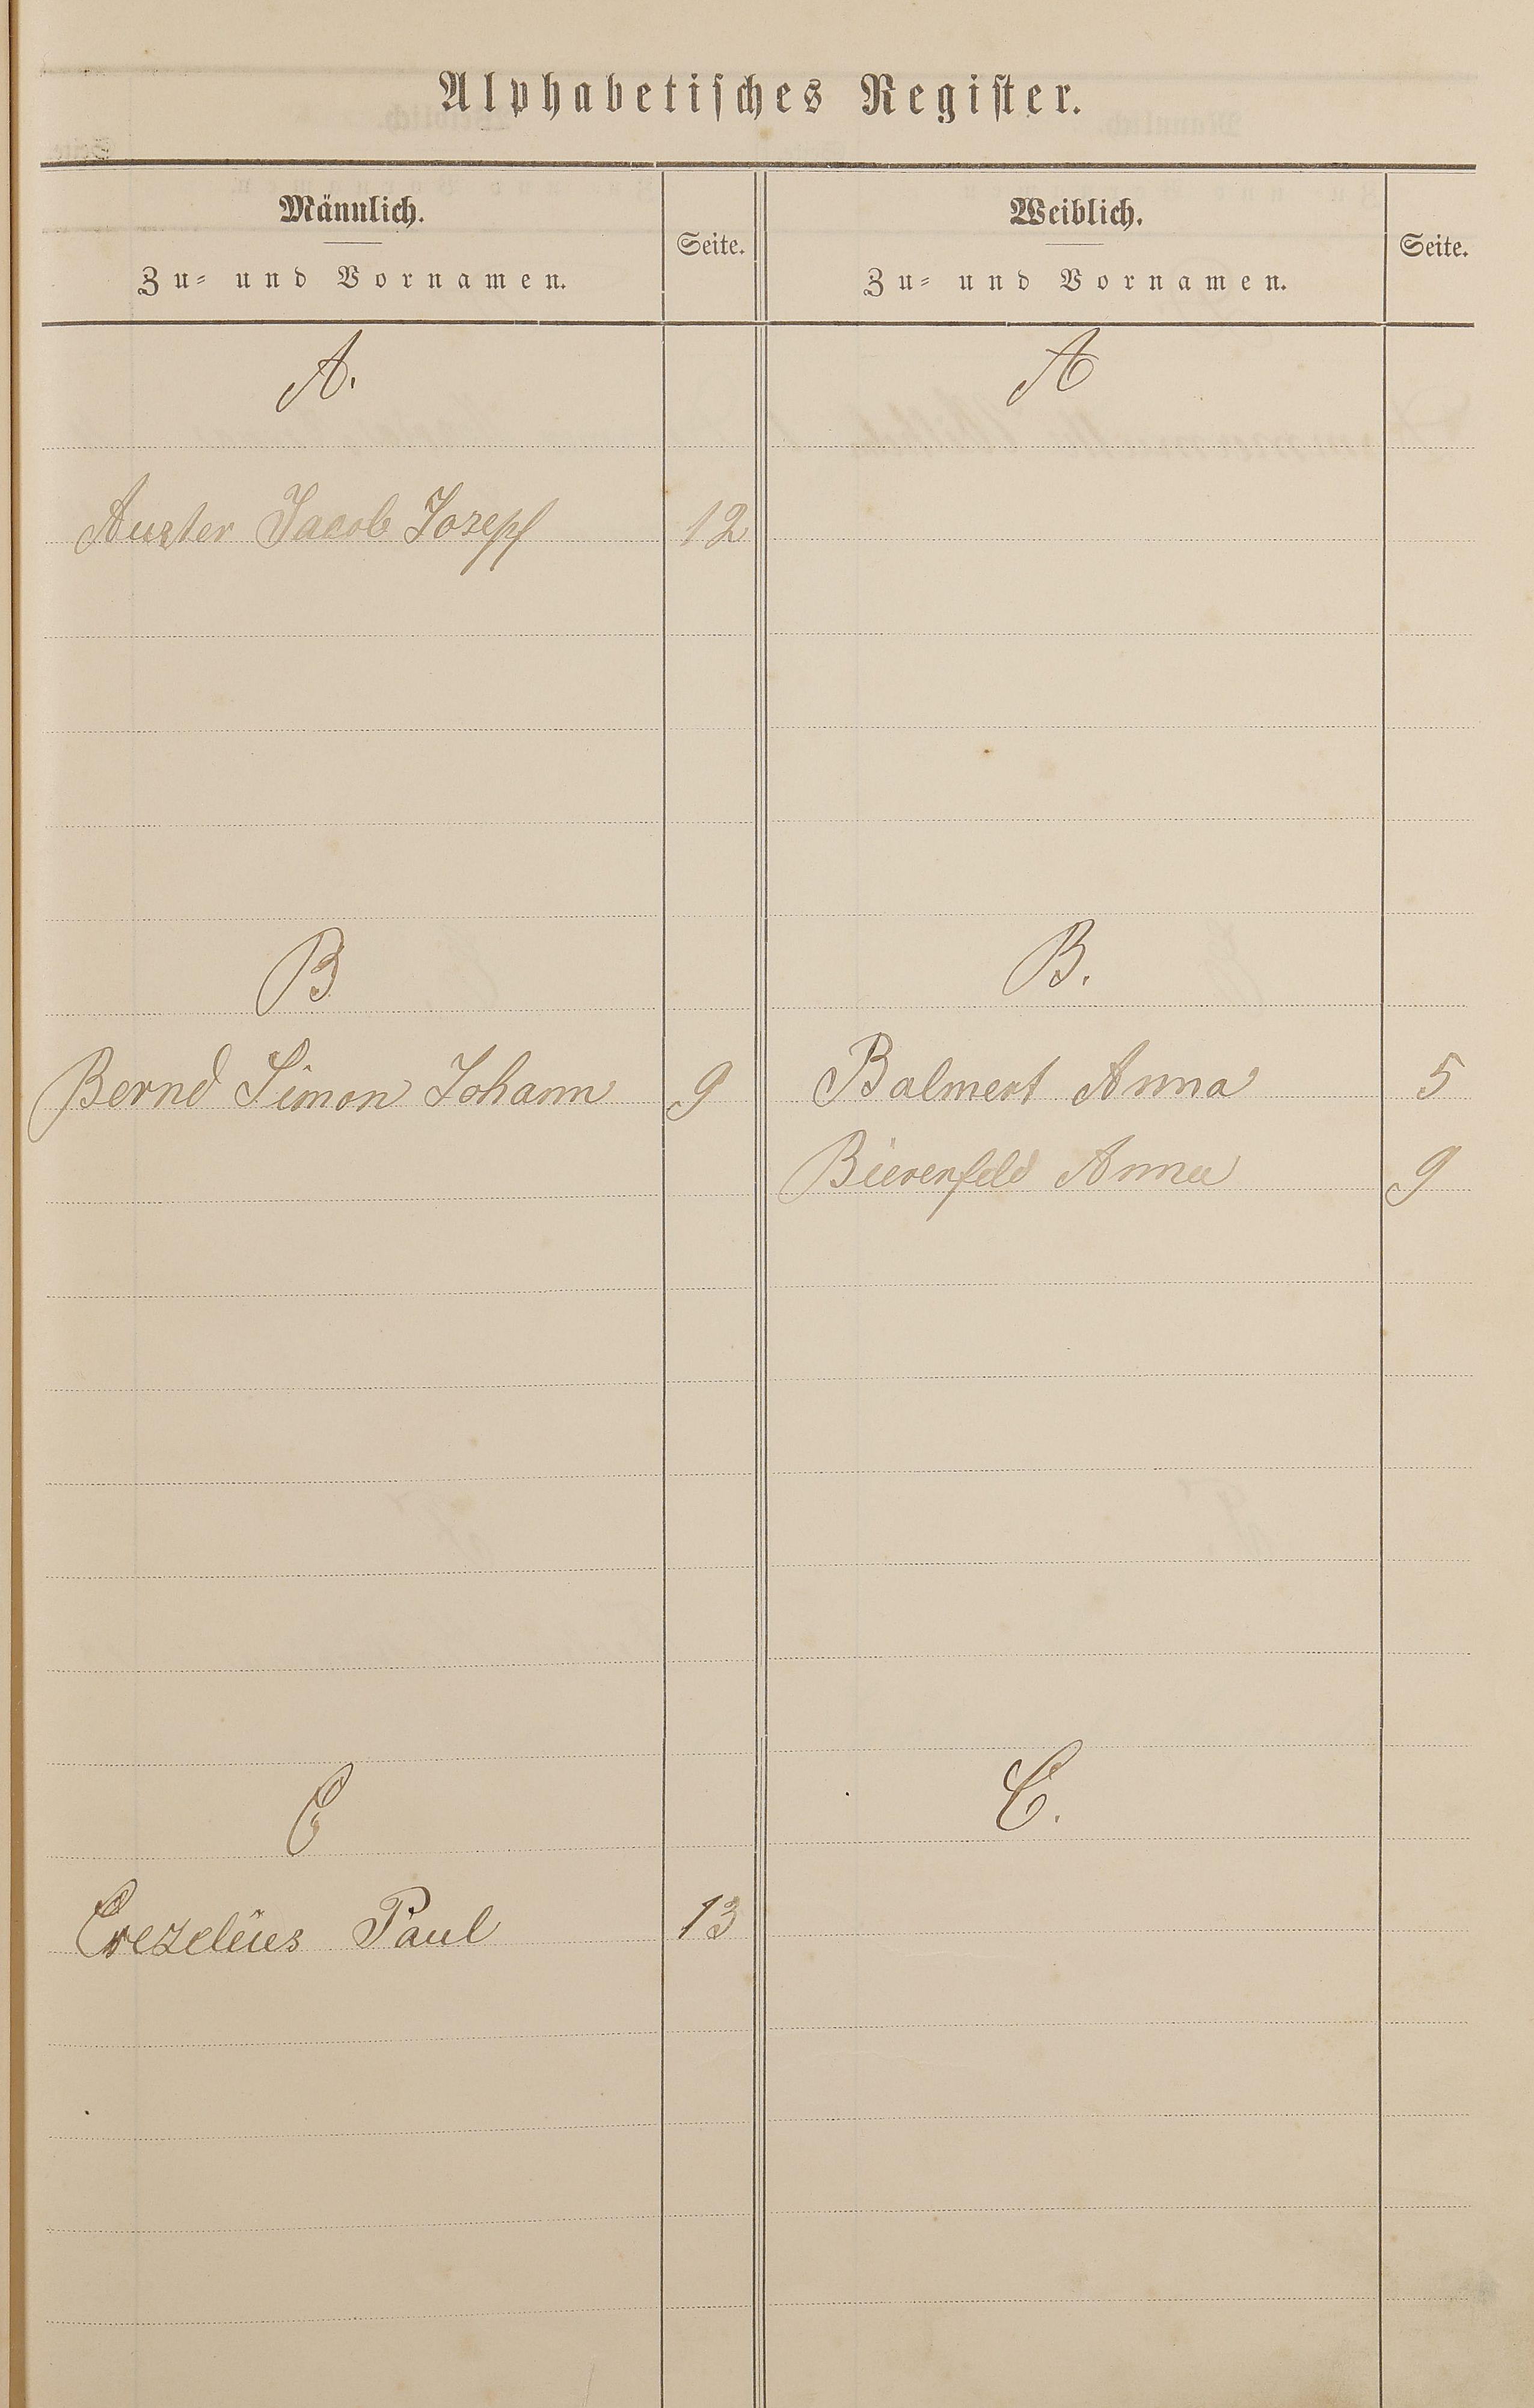 Alphabetisches Register.
Männlich.
Zu- und Vornamen.
Seite.
Weiblich.
Zu- und Vornamen.
Seite.
A.
A
Auster Jacob Josepf
12
B
B.
Bernd Simon Johann
9
Balmert Anna
5
Bierenfeld Anna
9
C
C.
Crezelius Paul
13